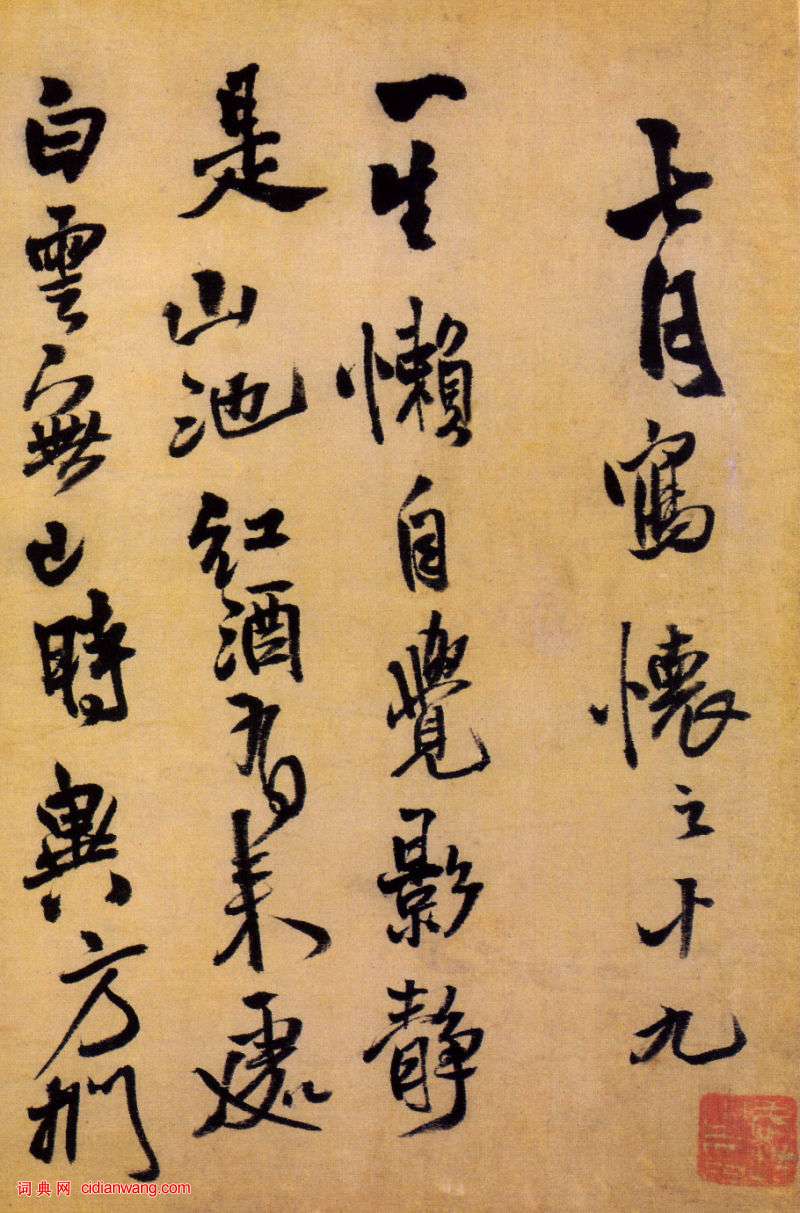 七月寫懷之十九
一生懶自覺影靜
是山池紅酒有来處
白雲無已時興方捫
词典网 cidianwang.com